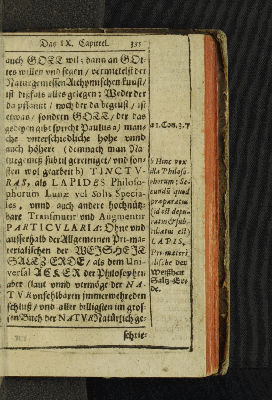 Das IX. Capittel.
335
auch GOTT wil; dann an GOt-
tes willen und segen / vermittelst der
Naturgemessen Alchymischen kunst /
ist dißfals alles gelegen: Weder der
da pflantzt / noch der da begeüst / ist
etwas / sondern GOTT / der das
gedeyen gibt spricht Paulus a) man-
che unterschiedliche hohe vnd
auch höhere (demnach man Na-
turgemeß subtil gereiniget / vnd son-
sten wol gearbeit b) TINCTV-
RAS, als LAPIDES Philoso-
phorum Lunæ vel Solis Specia-
les, vnnd auch andere hochnütz-
bare Transmutir vnd Augmentir
PARTICVLARIA: Ohne vnd
ausserhalb der Allgemeinen Pri-ma-
terialischen der WEISHEIT
SALTZ-ERDE / als dem Uni-
versal ACKER der Philosophen
aber (laut vnnd vermöge der NA-
TVR vnfehlbaren jmmerwehreden
schluß / vnd aller billigsten im gros-
sen Buch der NATVR Natürlich ge-
schrie-
a 1. Cor. 3. 7
b) Hinc
Philoso-
phorum: Se-
cundi
præparatur
id est
LAPIS,
Pri-materi-
alische der
Weißheit
Saltz-Er-
de.